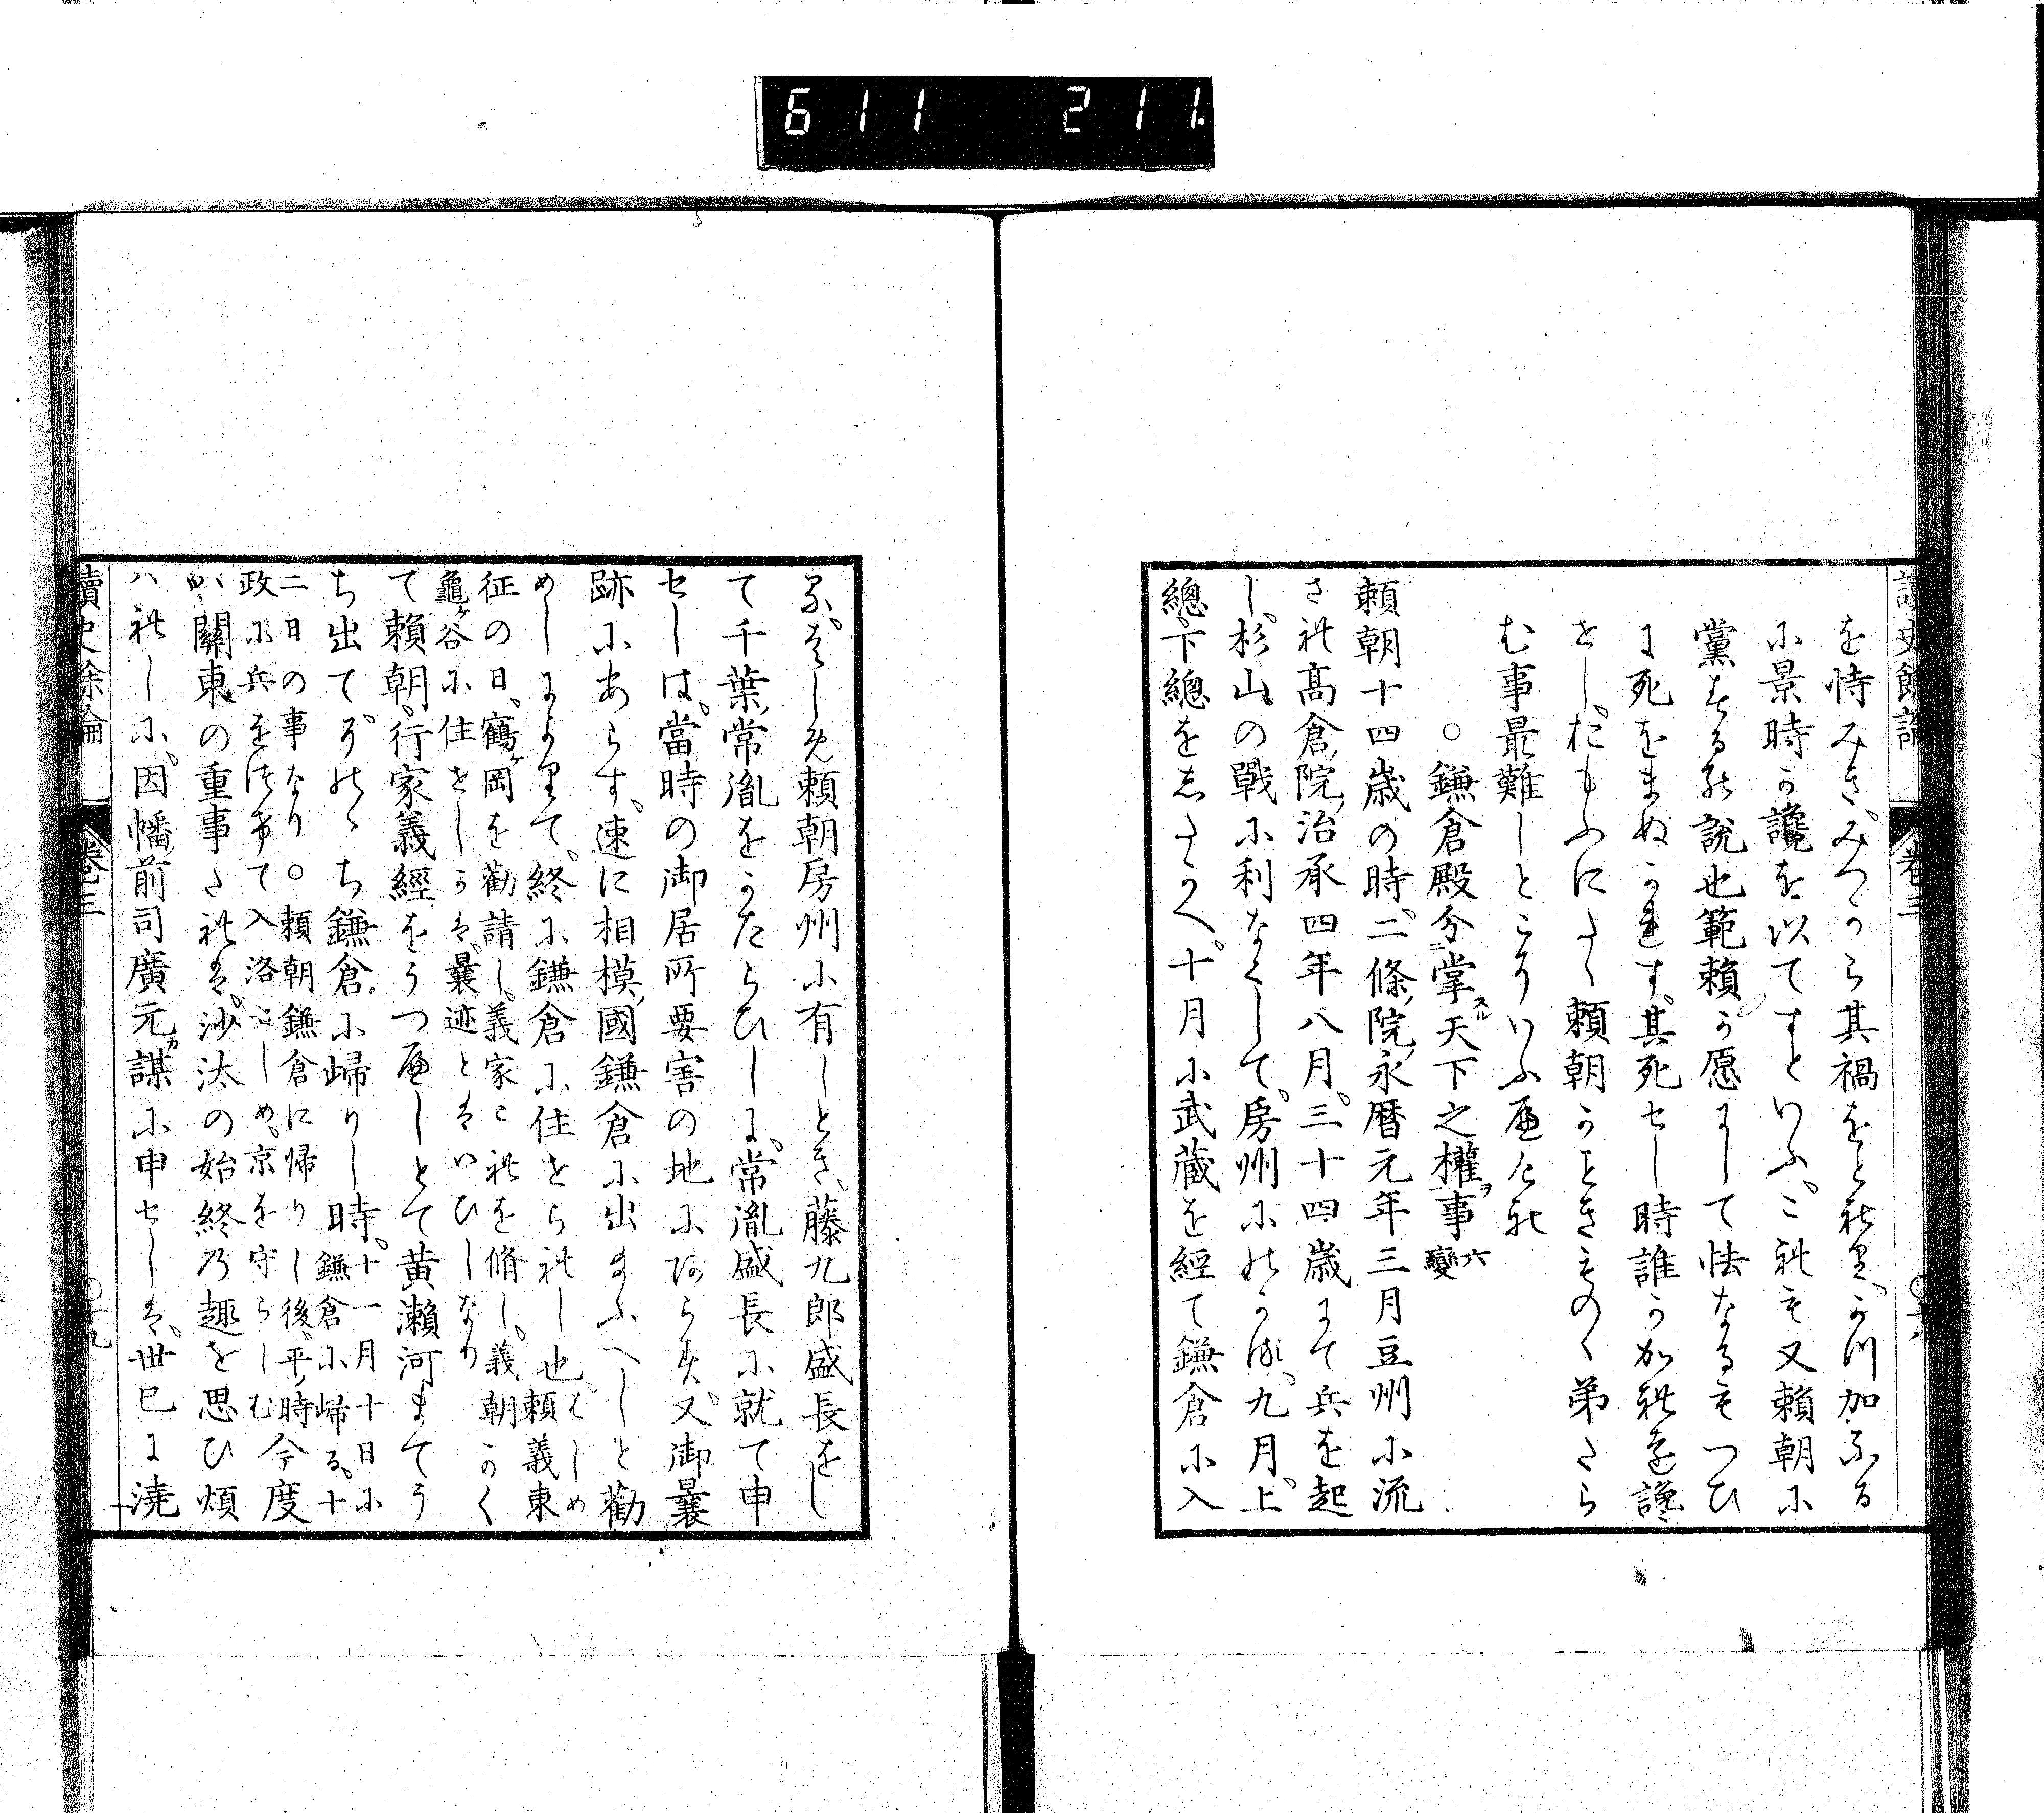 611 211.
讀史餘論 卷三 〇十八
を恃みき、みつから其禍をとれり、かつ加ふる
に景時か讒を以てすといふ、これも又賴朝に
黨するの說也範賴か愿にして怯なるもつひ
に死をまぬかれす、其死せし時誰か加れを讒
せし、おもふにたゝ賴朝かときものゝ弟たら
む事最難しとこそいふへけれ
〇鎌倉殿分掌スル天下之權ヲ事 六變
賴朝十四歲の時、二條院永曆元年三月豆州に流
され高倉院治承四年八月、三十四歲にて兵を起
し、杉山の戰に利なくして、房州にのかる、九月、上
總下總をしたかへ、十月に武藏を經て鎌倉に入
る、はしめ賴朝房州に有しとき、藤九郎盛長をし
て千葉常胤をかたらひしに、常胤盛長に就て申
せしは、當時の御居所要害の地にあらす、又御曩
跡にあらす、速に相模國鎌倉に出給ふへしと勸
めしによりて、終に鎌倉に住せられし也、はしめ賴義東
征の日、鶴ヶ岡を勸請し、義家これを脩し、義朝かく
龜ヶ谷に住せしかは、曩迹とはいひしなり
て賴朝、行家義經をうつへしとて黃瀨河まてう
ち出て、そのゝち鎌倉に歸りし時、十一月十日に鎌倉に歸る、十
二日の事なり〇賴朝鎌倉に帰りし後、平時
政に兵をつけて入洛せしめ、京を守らしむ今度
か關東の重事たれは、沙汰の始終乃趣を思ひ煩
ハれしに、因幡前司廣元カ謀に申せしは、世已に澆
讀史餘論 卷三 〇十九